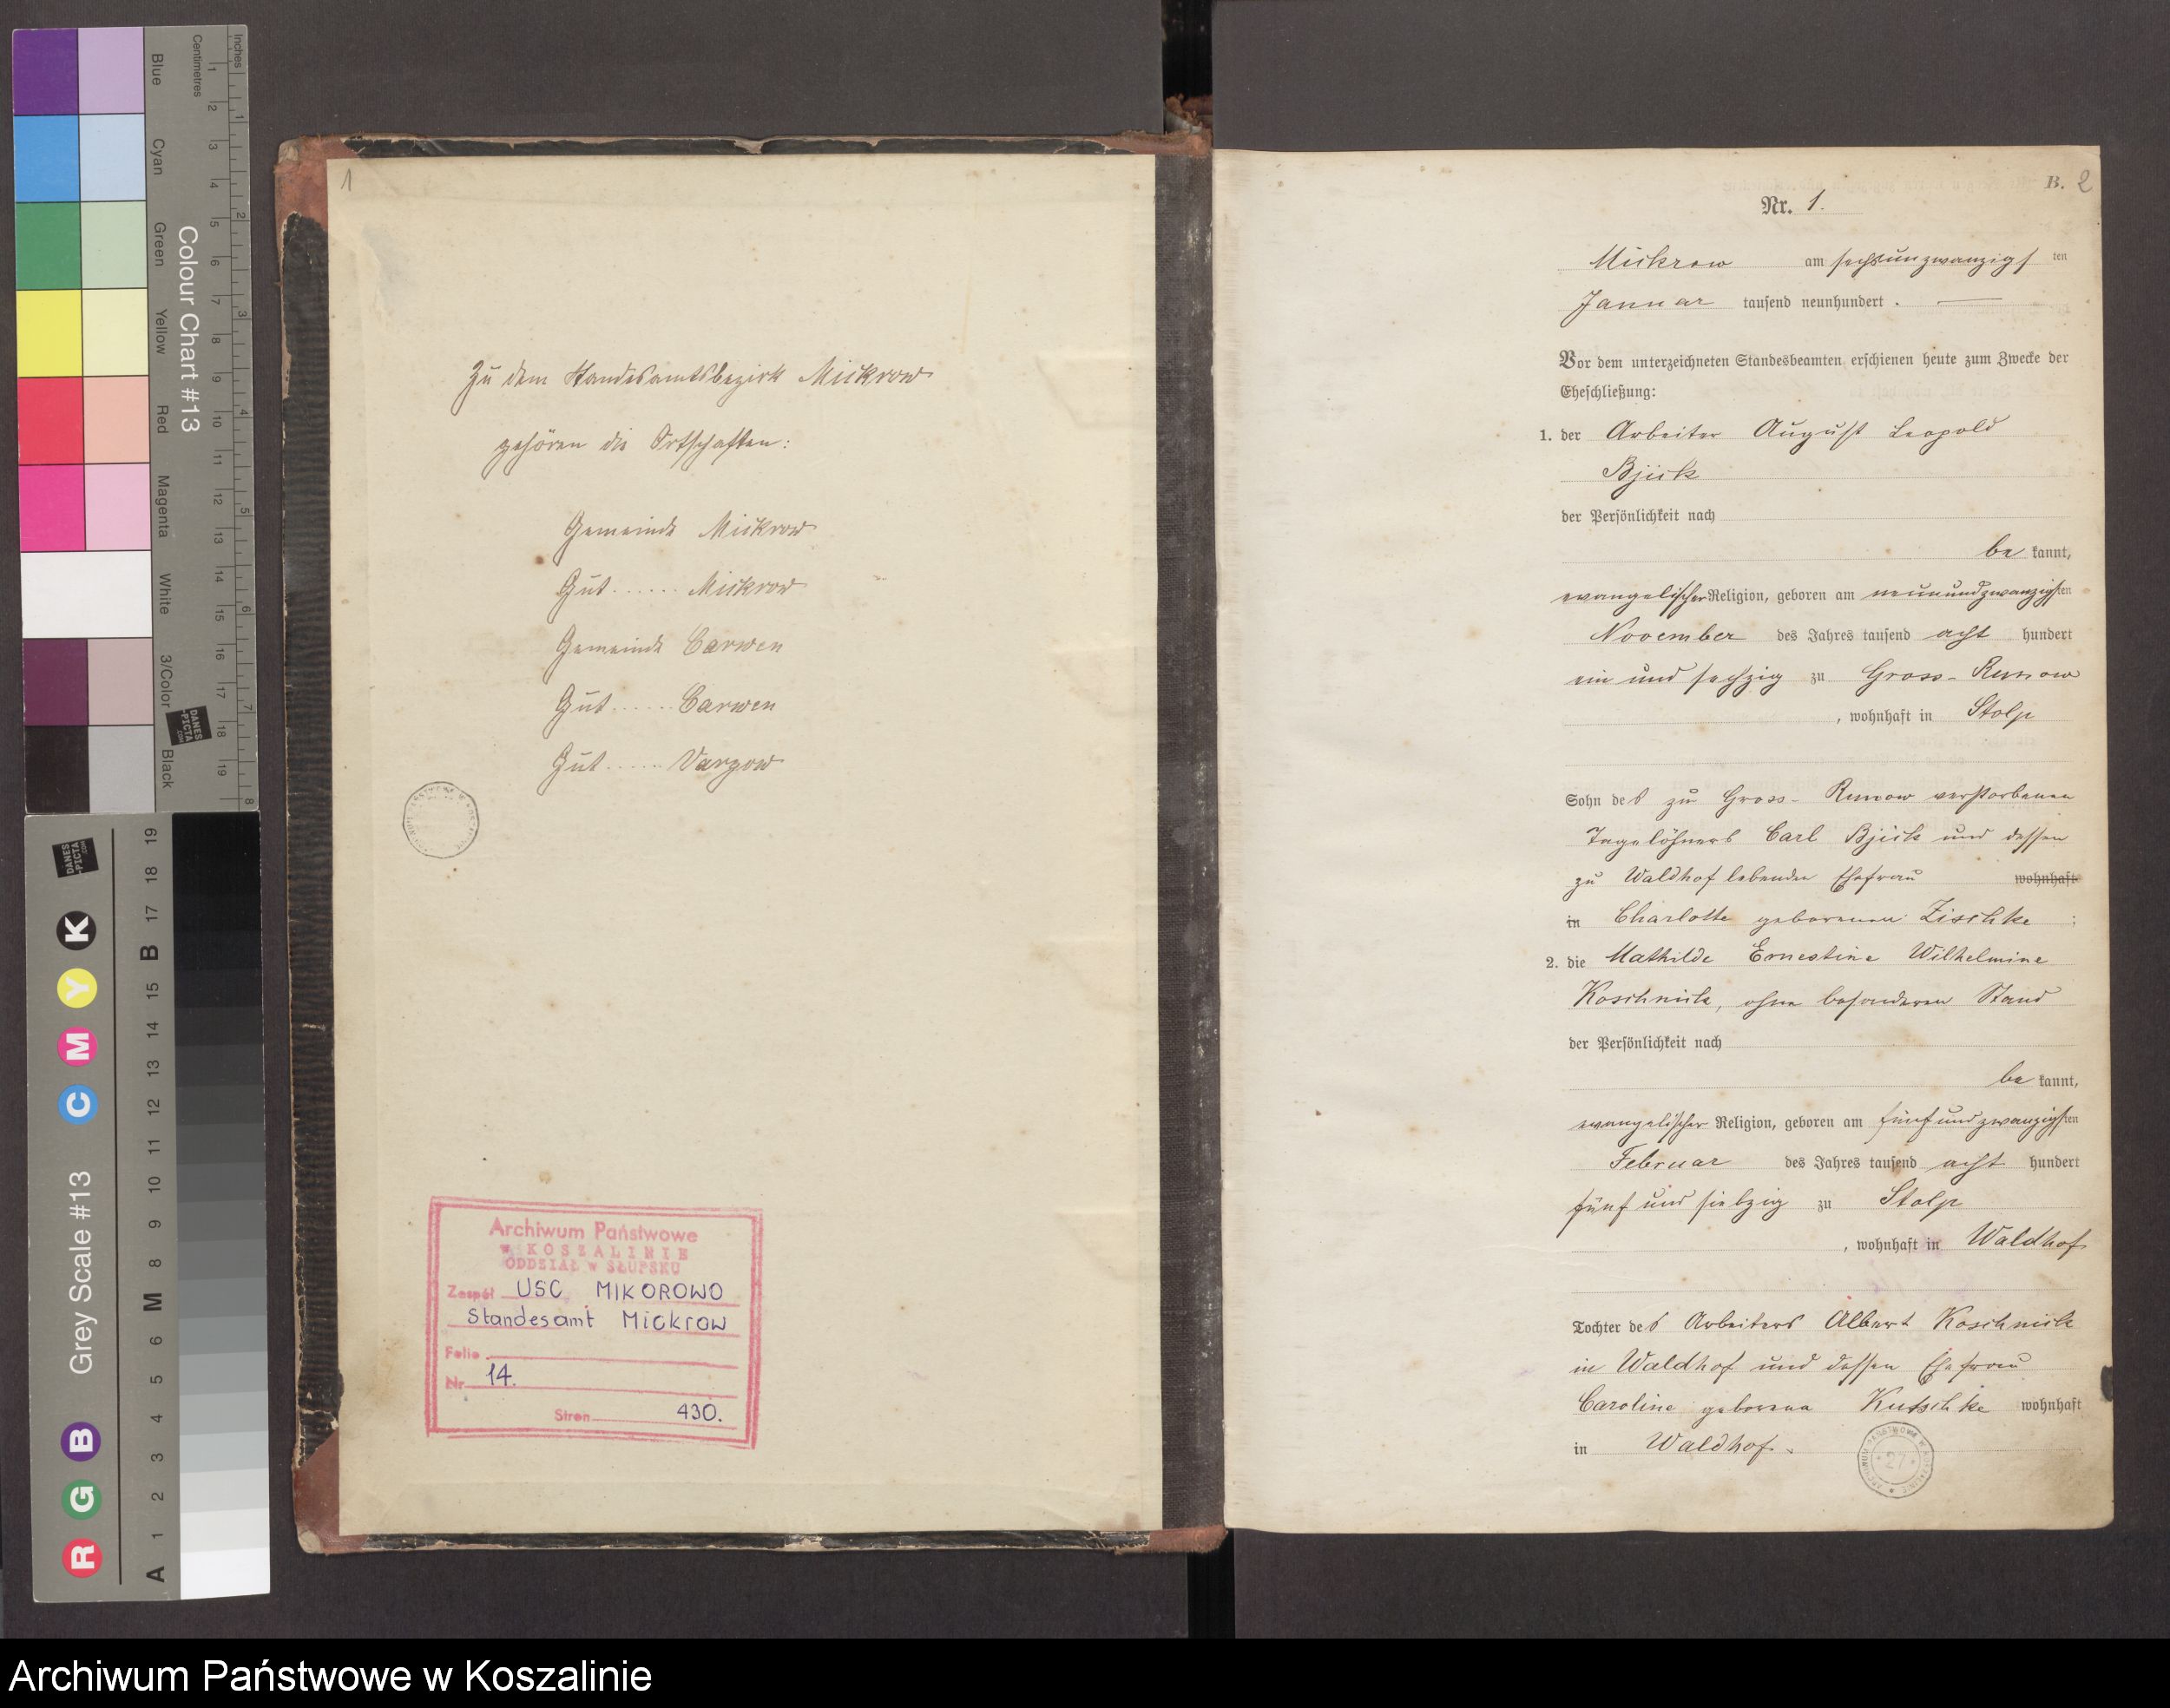 Inches
Centimetres
Colour Chart #13
Blue
Cyan
Green
Yellow
Red
Magenta
White
3/Color
Black
DANES
-PICTA
.COM
Grey Scale #13
R G B C M Y K
A 1 2 3 4 5 6 M 8 9 10 11 12 13 14 15 B 17 18 19
1
Zu dem Standesamtsbezirk Mickrow
gehören die Ortschaften:
Gemeinde Mickrow
Gut ...... Mickrow
Gemeinde Carwen
Gut ...... Carwen
Gut ...... Vargow
Archiwum Państwowe
w KOSZALINIE
ODDZIAŁ w SŁUPSKU
Zespół USC MIKOROWO
Standesamt Mickrow
Folio
Nr 14.
Stron 430.
B. 2
Nr. 1.
Mickrow am sechsunzwanzigsten
Januar tausend neunhundert.
Vor dem unterzeichneten Standesbeamten erschienen heute zum Zwecke der
Eheschließung:
1. der Arbeiter August Leopold
Bjick
der Persönlichkeit nach
be kannt,
evangelischer Religion, geboren am neunundzwanzigsten
November des Jahres tausend acht hundert
ein und sechzig zu Gross-Runow
, wohnhaft in Stolp
Sohn des zu Gross-Runow verstorbenen
Tagelöhners Carl Bjick und dessen
zu Waldhof lebenden Ehefrau wohnhaft
in Charlotte geborenen Zischke ;
2. die Mathilde Ernestine Wilhelmine
Koschnick, ohne besonderen Stand
der Persönlichkeit nach
be kannt,
evangelischer Religion, geboren am fünfundzwanzigsten
Februar des Jahres tausend acht hundert
fünf und siebzig zu Stolp
, wohnhaft in Waldhof
Tochter des Arbeiters Albert Koschnick
in Waldhof und dessen Ehefrau
Caroline geborene Kutschke wohnhaft
in Waldhof.
27
Archiwum Państwowe w Koszalinie